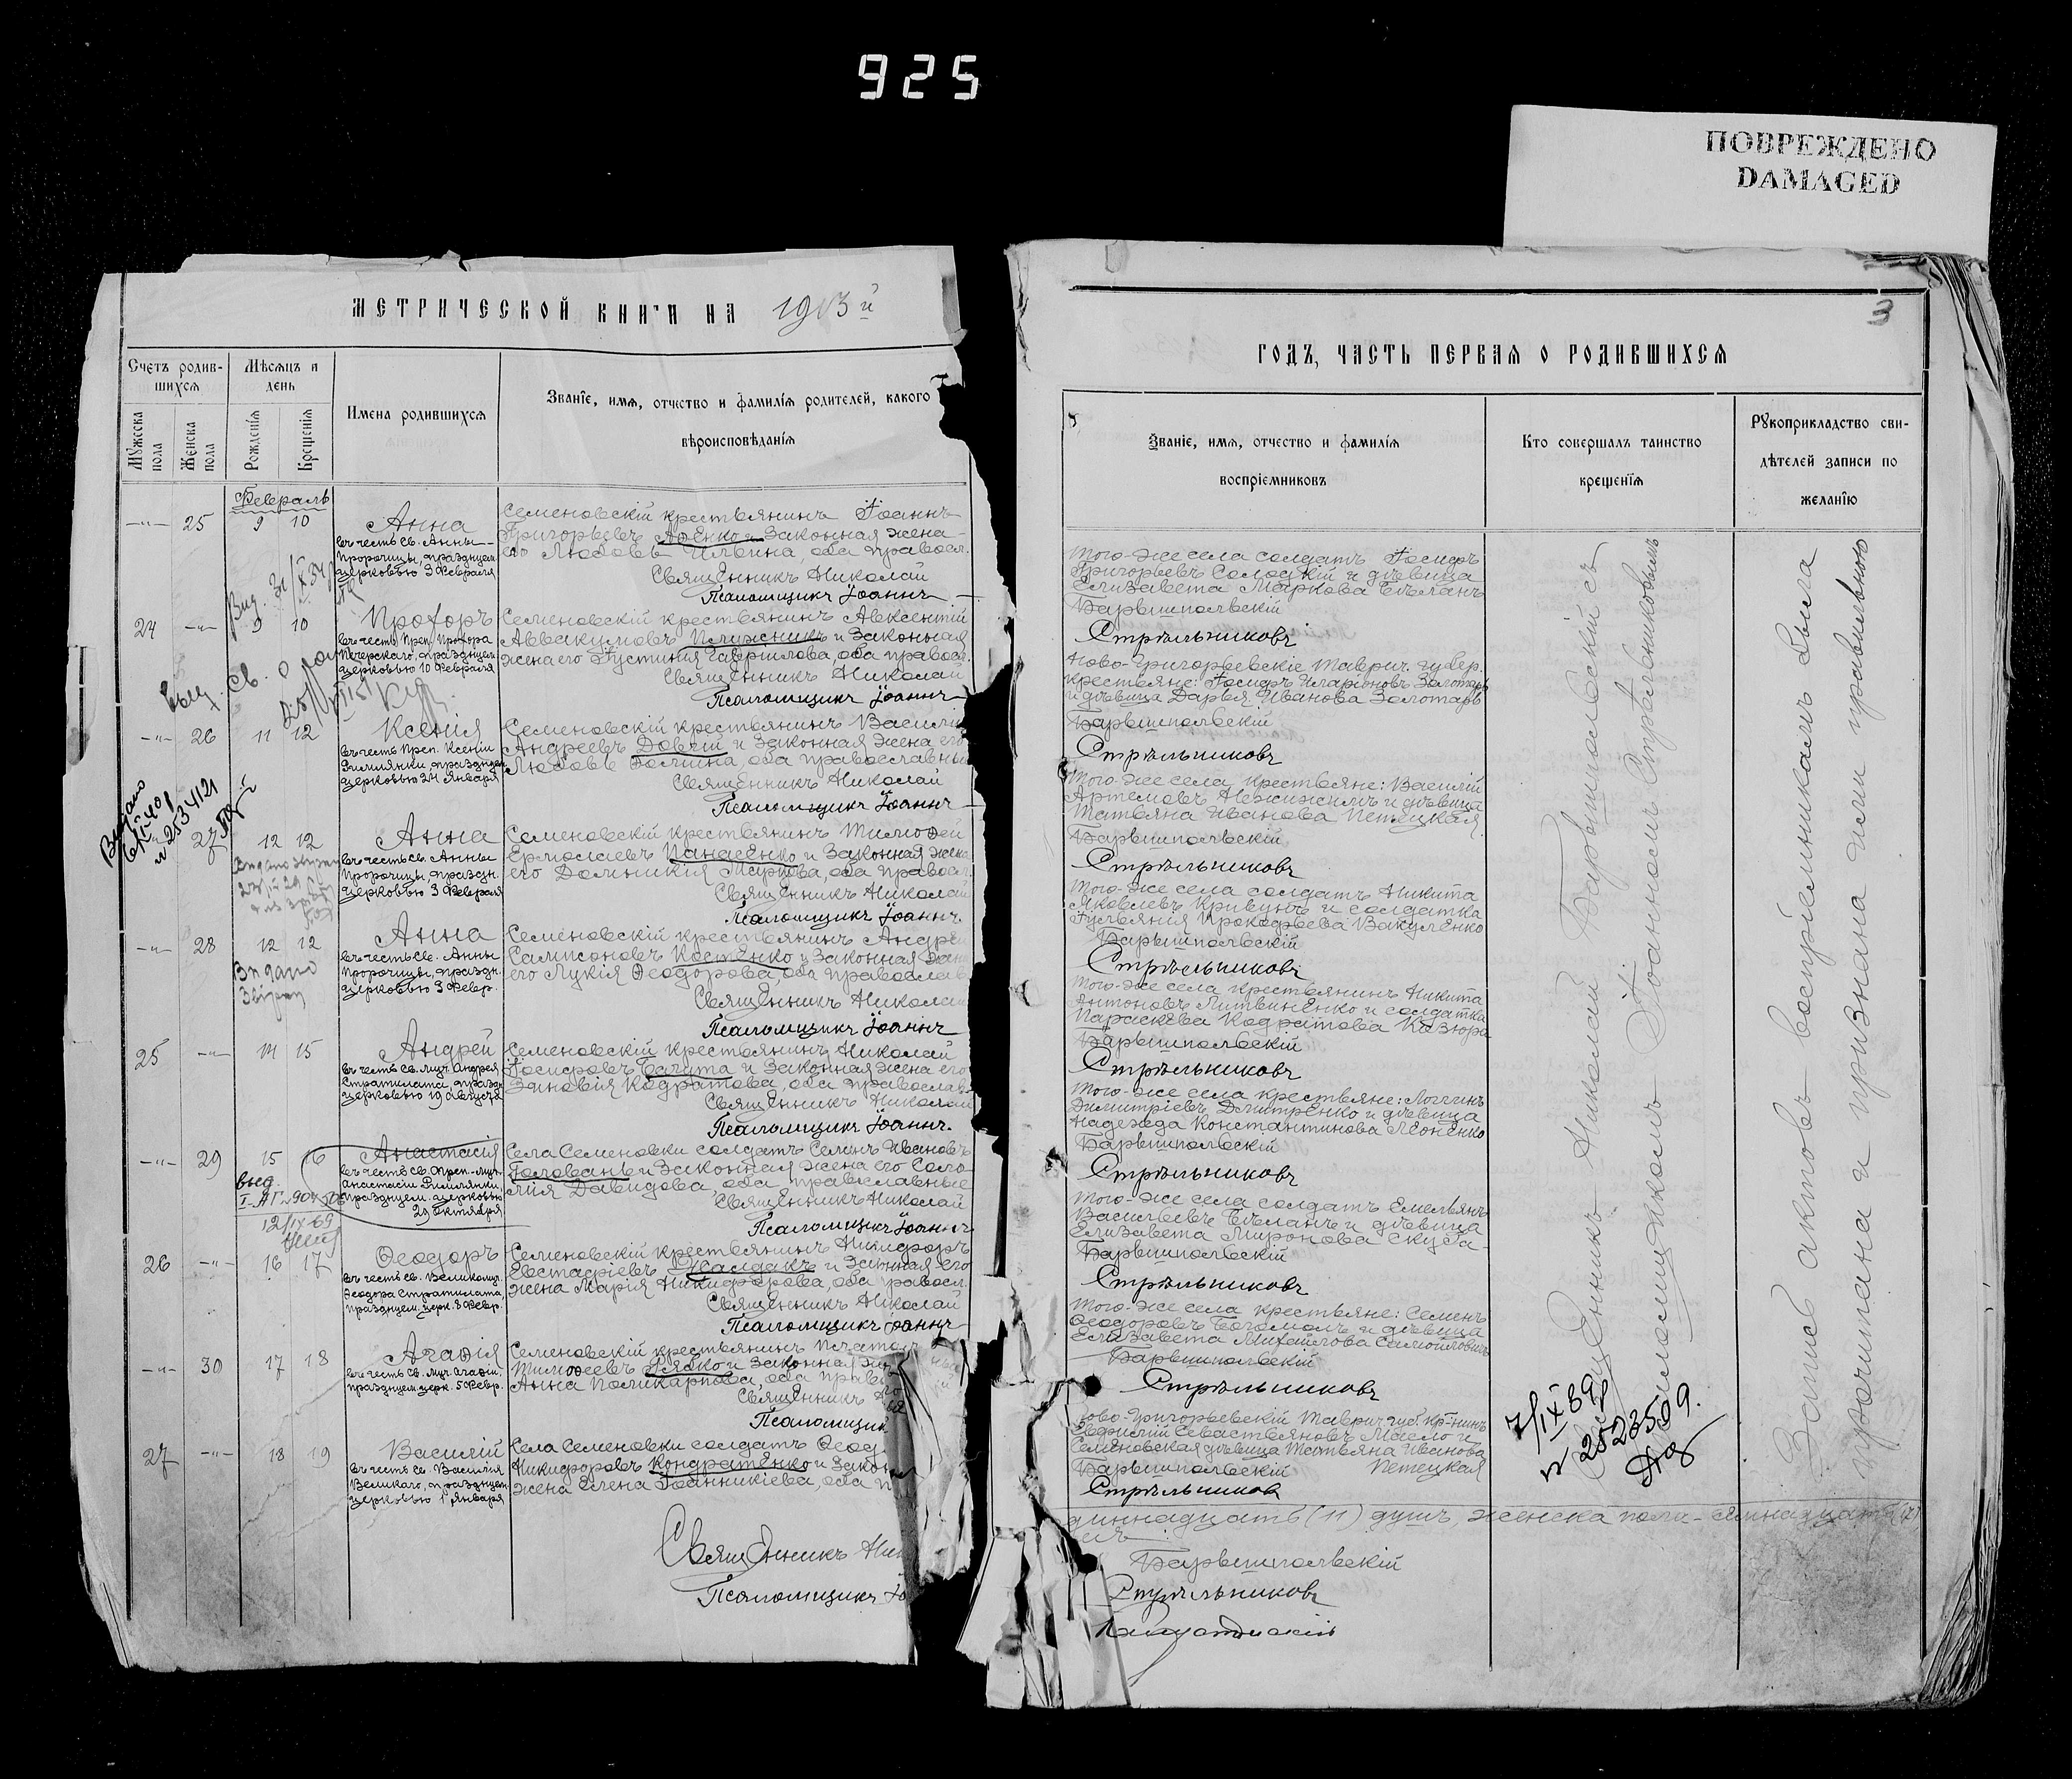 925
ПОВРЕЖДЕНО
DAMAGED
МЕТРИЧЕСКОЙ КНИГИ НА 1913 й
Счетъ родив-
шихся
Мѣсяцъ и
день
Имена родившихся
Званіе, имя, отчество и фамилія родителей, какого
вѣроисповѣданія
Мужеска пола
Женска пола
Рожденія
Крещенія
Февраль
-"- 25 9 10 Анна
въ честь св. Анны
Пророчицы, празднуем.
церковью 3 Февраля
Семеновскій крестьянинъ Іоаннъ
Григорьевъ и законная жена
его Любовь Ильина, оба правосл.
Священникъ Николай
Псаломщикъ Іоаннъ
24 -"- 9 10 Прохоръ
въ честь Преп. Прохора
Печерскаго, празднуем.
церковью 10 Февраля
Семеновскій крестьянинъ Авксентій
Аввакумовъ и законная
жена его Іустинія Гавриілова, оба правосл.
Священникъ Николай
Псаломщикъ Іоаннъ
-"- 26 11 12 Ксенія
въ честь Преп. Ксеніи
Римлянки, празднуем.
церковью 24 Января
Семеновскій крестьянинъ Василій
Андреевъ Довгій и законная жена его
Любовь, оба православные
Священникъ Николай
Псаломщикъ Іоаннъ
27 12 12 Анна
въ честь св. Анны
Пророчицы, праздн.
церковью 3 Февраля
Семеновскій крестьянинъ Тимофей
Ермолаевъ Панасенко и законная жена
его Домникія Маркова, оба правосл.
Священникъ Николай
Псаломщикъ Іоаннъ.
-"- 28 12 12 Анна
въ честь св. Анны
Пророчицы, праздн.
церковью 3 Февр.
Видано
Семеновскій крестьянинъ Андрей
Сампсоновъ Костенко и законная жена
его Лукія Ѳеодорова, оба православ
Священникъ Николай
Псаломщикъ Іоаннъ
25 -"- 14 15 Андрей
въ честь св. муч. Андрея
Стратилата, праздн.
церковью 19 Августа
Семеновскій крестьянинъ Николай
Іосифовъ Багита и законная жена его
Зиновія Кодратова, оба православ.
Священникъ Николай
Псаломщикъ Іоаннъ.
-"- 29 15 16 Анастасія
въ честь св. Преп.-муч.
Анастасіи Римлянки,
празднуем. церковью
29 октября
12/IX 69
Села Семеновки солдатъ Семенъ Ивановъ
Голованъ и законная жена его Соло-
мія Давидова, оба православные
Священникъ Николай
Псаломщикъ Іоаннъ
26 -"- 16 17 Ѳеодоръ
въ честь св. Великомуч.
Ѳеодора Стратилата,
празднуем. церк. 8 Февр.
Семеновскій крестьянинъ Никифоръ
Евстафіевъ и законная его
жена Марія Никифорова, оба правосл.
Священникъ Николай
Псаломщикъ Іоаннъ
-"- 30 17 18 Агафія
въ честь св. муч. Агафіи,
празднуем. церк. 5 Февр.
Семеновскій крестьянинъ Игнатій
Тимофеевъ Рябко и законная
Анна Поликарпова, оба прав
Священникъ
Псаломщик
27 -"- 18 19 Василій
въ честь св. Василія
Великаго, празднуем.
церковью 1 Января
Села Семеновки солдатъ Ѳеод
Никифоровъ Кондратенко и закон
жена Елена Іоанникіева, оба п
Священникъ Ник
Псаломщикъ Іо
3
ГОДЪ, ЧАСТЬ ПЕРВАЯ О РОДИВШИХСЯ
Званіе, имя, отчество и фамилія
воспріемниковъ
Кто совершалъ таинство
крещенія
Рукоприкладство сви-
дѣтелей записи по
желанію
Того-же села солдатъ Іосифъ
Григорьевъ Солоцкій и дѣвица
Елизавета Маркова Бѣланъ
Барышпольскій
Стрѣльниковъ
Ново-Григорьевскіе Таврич. губер.
крестьяне: Іосифъ Иларіоновъ Золотарь
и дѣвица Дарья Иванова Золотарь
Барышпольскій
Стрѣльниковъ
Того-же села крестьяне: Василій
Артемовъ Нежижимъ и дѣвица
Татьяна Иванова Петецкая
Барышпольскій
Стрѣльниковъ
Того-же села солдатъ Никита
Яковлевъ Кривунъ и солдатка
Гульянія Прокофьева Вакуленко
Барышпольскій
Стрѣльниковъ
Того-же села крестьянинъ Никита
Антоновъ Литвиненко и солдатка
Параскева Кодратова Казюра
Барышпольскій
Стрѣльниковъ
Того-же села крестьяне: Логгинъ
Димитріевъ Дмитренко и дѣвица
Надежда Константинова Леоненко
Барышпольскій
Стрѣльниковъ
Того-же села солдатъ Емельянъ
Васильевъ Бѣланъ и дѣвица
Елизавета Миронова Скуба-
Барышпольскій
Стрѣльниковъ
Того-же села крестьяне: Семенъ
Ѳеодоровъ Богомолъ и дѣвица
Елизавета Михайлова Самойловичъ
Барышпольскій
Стрѣльниковъ
Ново-Григорьевскій Таврич. губ. кр-нинъ
Евфимій Севастьяновъ Масло и
Семеновская дѣвица Татьяна Иванова
Петецкая
Барышпольскій
Стрѣльниковъ
диннадцать (11) душъ, женска пола-
Барышпольскій
Стрѣльниковъ
Священникъ Николай Барышпольскій съ
псаломщикомъ Іоанномъ Стрѣльниковымъ
7/IX 69
№ 2523509.
Запись актовъ воспріемникамъ была
прочитана и признана ими правильною